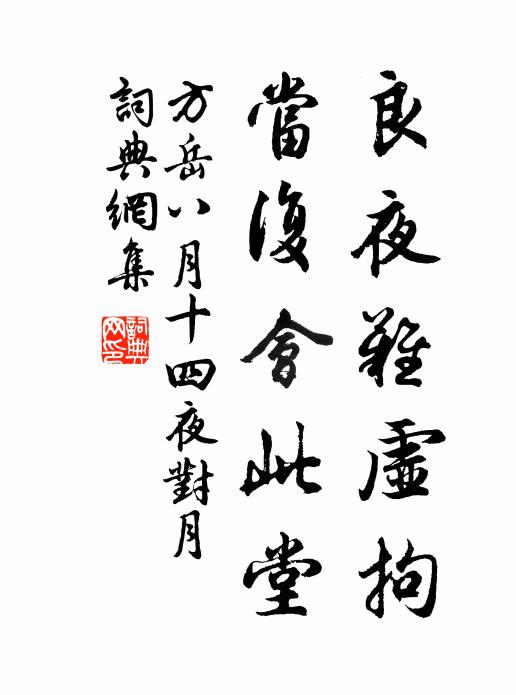 良夜難虛拘
當復會此堂
方岳八月十四夜對月
詞典網集
詞典网印